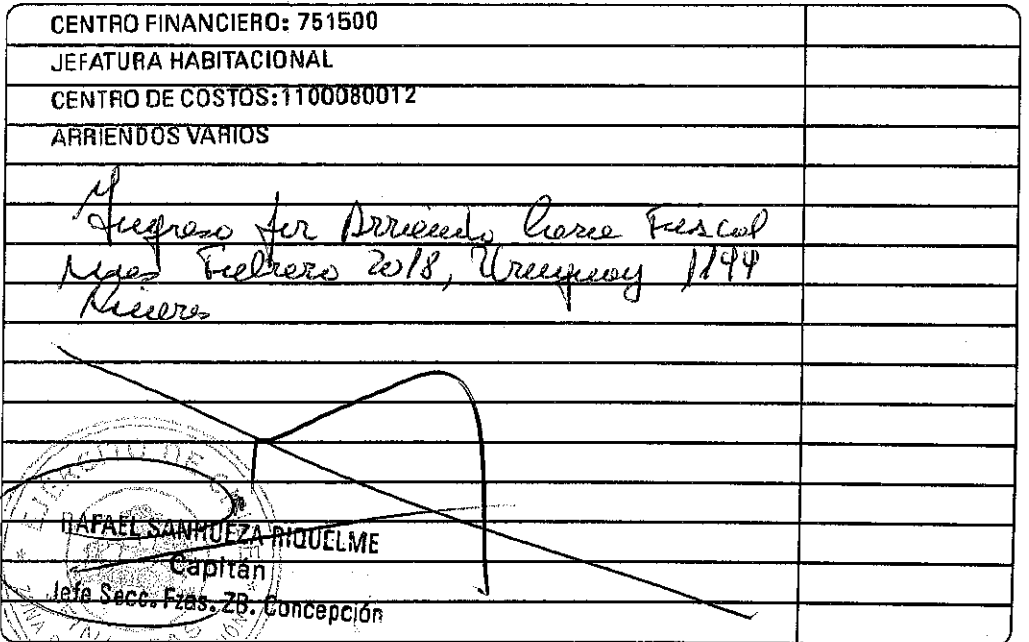 CENTRO FINANCIERO: 751500
JEFATURA HABITACIONAL
CENTRO DE COSTOS:1100080012
ARRIENDOS VARIOS
Ingreso por Arriendo Casa Fiscal
Mes Febrero 2018, Uruguay 1144
EJERCITO DE
RAFAEL SANHUEZA RIQUELME
Capitán
Jefe Secc. Fzas. ZB. Concepción